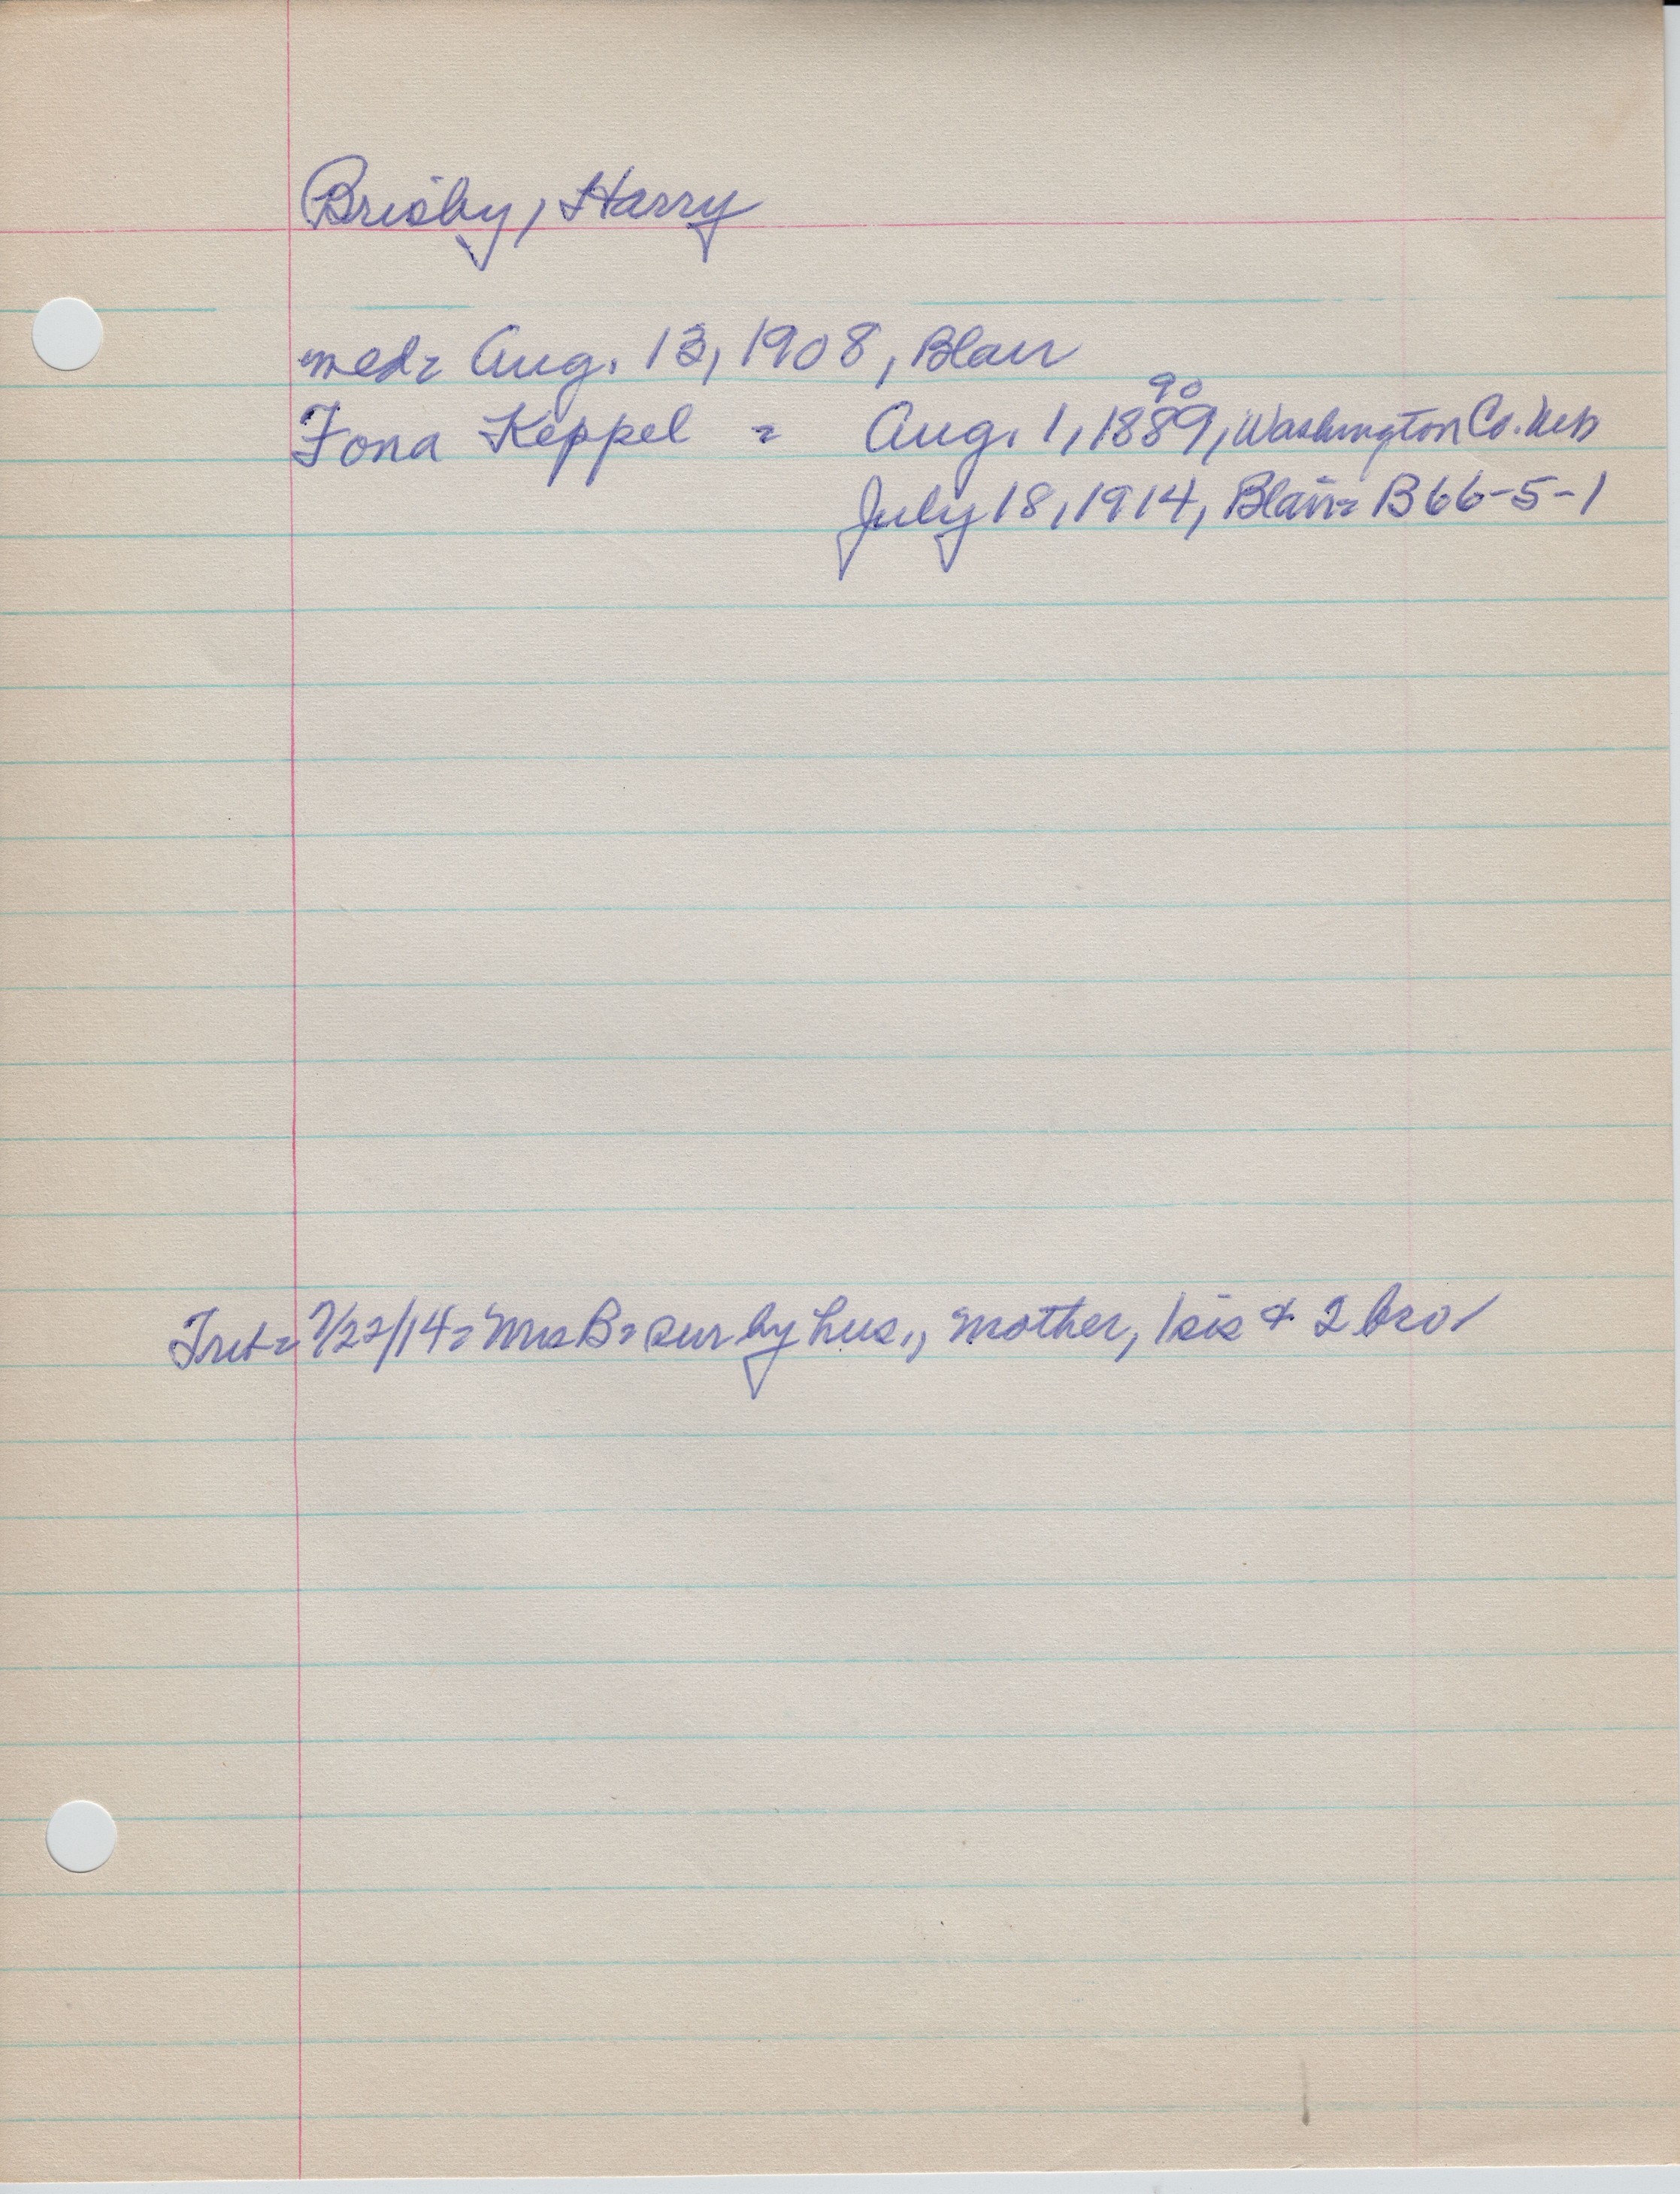 Brisby, Harry
med= Aug. 13, 1908, Blair
90
Fona Keppel = Aug. 1, 1889, Washington Co. Neb
July 18, 1914, Blair= B66-5-1
7/22/14= Mrs B= sur by hus., mother, 1 sis & 2 bro